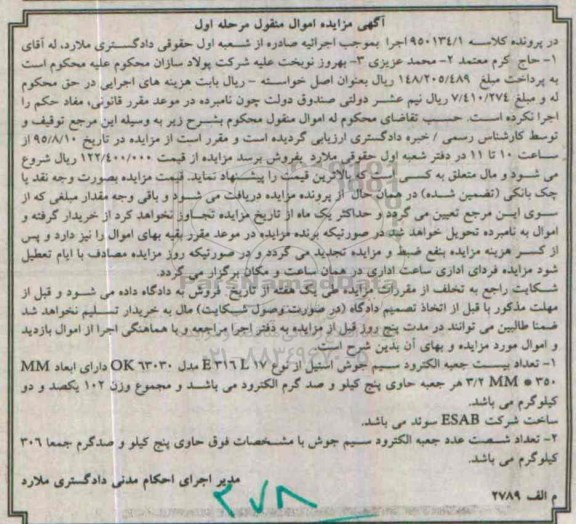 آگهی مزایده اموال منقول مرحله اول
در پرونده کلاسه ۹۵۰۱۳۴/۱ اجرا بموجب اجرائیه صادره از شعبه اول حقوقی دادگستری ملارد، له آقای
۱- حاج کرم معتمد ۲- محمد عزیزی ۳- بهروز نوبخت علیه شرکت پولاد سازان محکوم علیه محکوم است
به پرداخت مبلغ ۱۴۸/۲۰۵/۴۸۹ ریال بعنوان اصل خواسته - ریال بابت هزینه های اجرایی در حق محکوم
له و مبلغ ۷/۴۱۰/۲۷۴ ریال نیم عشر دولتی صندوق دولت چون نامبرده در موعد مقرر قانونی، مفاد حکم را
اجرا نکرده است. حسب تقاضای محکوم له اموال منقول محکوم بشرح زیر به وسیله این مرجع توقیف و
توسط کارشناس رسمی / خبره دادگستری ارزیابی گردیده است و مقرر است از مزایده در تاریخ ۹۵/۸/۱۰ از
ساعت ۱۰ تا ۱۱ در دفتر شعبه اول حقوقی ملارد بفروش برسد مزایده از قیمت ۱۲۲/۴۰۰/۰۰۰ ریال شروع
می شود و مال متعلق به کسی است که بالاترین قیمت را پیشنهاد نماید. قیمت مزایده بصورت وجه نقد یا
چک بانکی (تضمین شده) در همان حال از برنده مزایده دریافت می شود و باقی وجه مقدار مبلغی که از
سوی این مرجع تعیین می گردد و حداکثر یک ماه از تاریخ مزایده تجاوز نخواهد کرد از خریدار گرفته و
اموال به نامبرده تحویل خواهد شد در صورتیکه برنده مزایده در موعد مقرر بقیه بهای اموال را نیز دارد و پس
از کسر هزینه مزایده بنفع ضبط و مزایده تجدید می گردد و در صورتیکه روز مزایده مصادف با ایام تعطیل
شود مزایده فردای اداری ساعت اداری در همان ساعت و مکان برگزار می گردد.
شکایت راجع به تخلف از مقررات مزایده طی یک هفته از تاریخ. فروش به دادگاه داده می شود و قبل از
مهلت مذکور یا قبل از اتخاذ تصمیم دادگاه (در صورت وصول شکایت) مال به خریدار تسلیم نخواهد شد
ضمنا طالبین می توانند در مدت پنج روز قبل از مزایده به دفتر اجرا مراجعه و با هماهنگی اجرا از اموال بازدید
و اموال مورد مزایده و بهای آن بدین شرح است.
۱- تعداد بیست جعبه الکترود سیم جوش استیل از نوع E ۳۱۶ L ۱۷ مدل OK ۶۳۰۳۰ دارای ابعاد MM
۳/۲ MM * ۳۵۰ هر جعبه حاوی پنج کیلو و صد گرم الکترود می باشد و مجموع وزن ۱۰۲ یکصد و دو
کیلوگرم می باشد.
ساخت شرکت ESAB سوئد می باشد.
۲- تعداد شصت عدد جعبه الکترود سیم جوش با مشخصات فوق حاوی پنج کیلو و صدگرم جمعا ۳۰۶
کیلوگرم می باشد.
مدیر اجرای احکام مدنی دادگستری ملارد
م الف ۲۷۸۹
۳۷۸